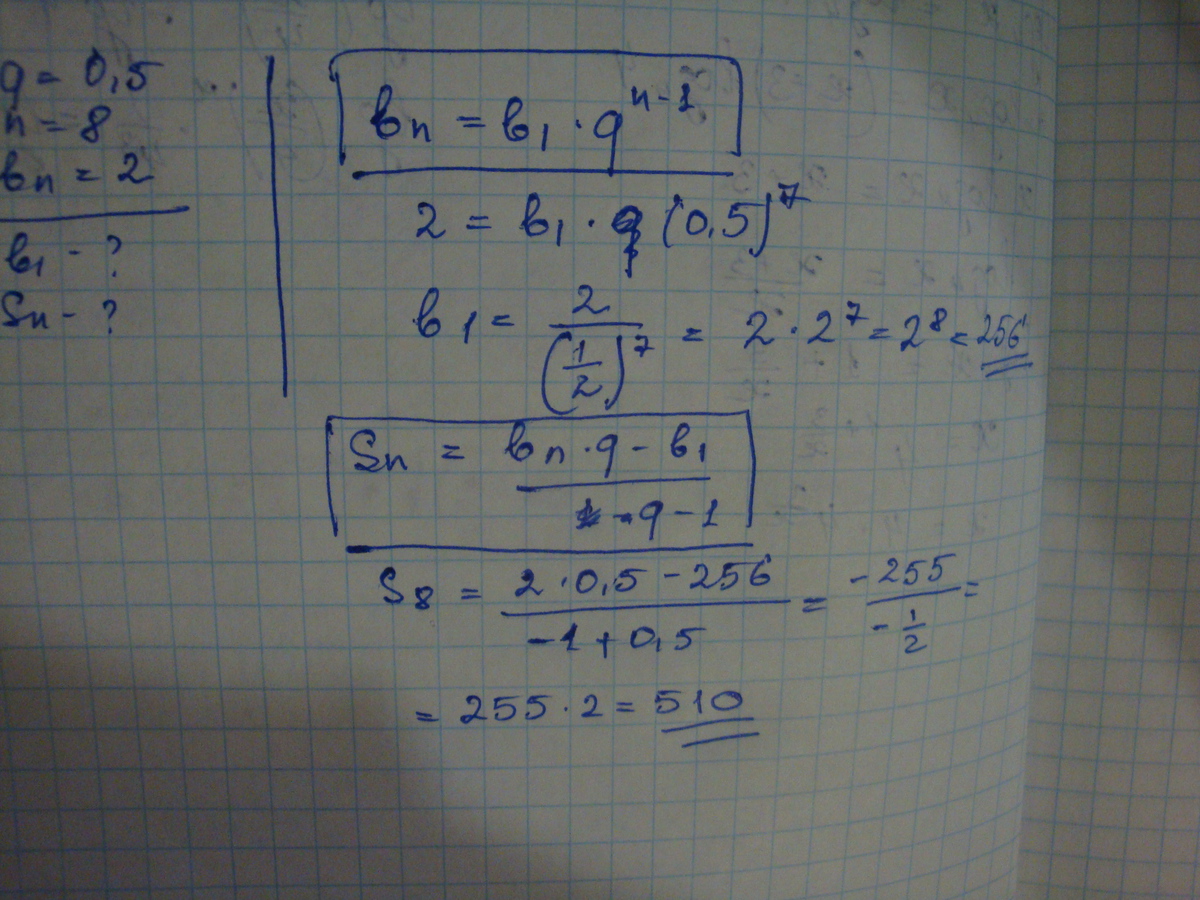 q = 0,5
n = 8
bn = 2
b1 - ?
Sn - ?
bn = b1 · q^(n-1)
2 = b1 · (0,5)^7
b1 = 2/(1/2)^7 = 2 · 2^7 = 2^8 = 256
Sn = (bn · q - b1)/(q - 1)
S8 = (2 · 0,5 - 256)/(-1 + 0,5) = (-255)/(-1/2) =
= 255 · 2 = 510